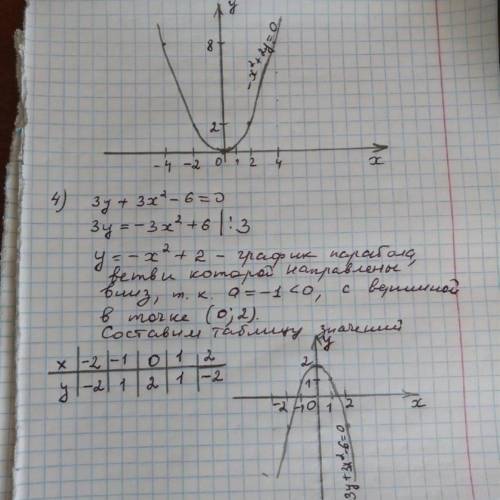 y
8
-x²+2y=0
2
-4 -2 0 1 2 4
x
4) 3y + 3x² - 6 = 0
3y = -3x² + 6 | : 3
y = -x² + 2 - график парабола,
ветви которой направлены
вниз, т. к. a = -1 < 0, с вершиной
в точке (0; 2).
Составим таблицу значений
x | -2 | -1 | 0 | 1 | 2
y | -2 | 1 | 2 | 1 | -2
y
2
1
-2 -1 0 1 2
x
3y+3x²-6=0